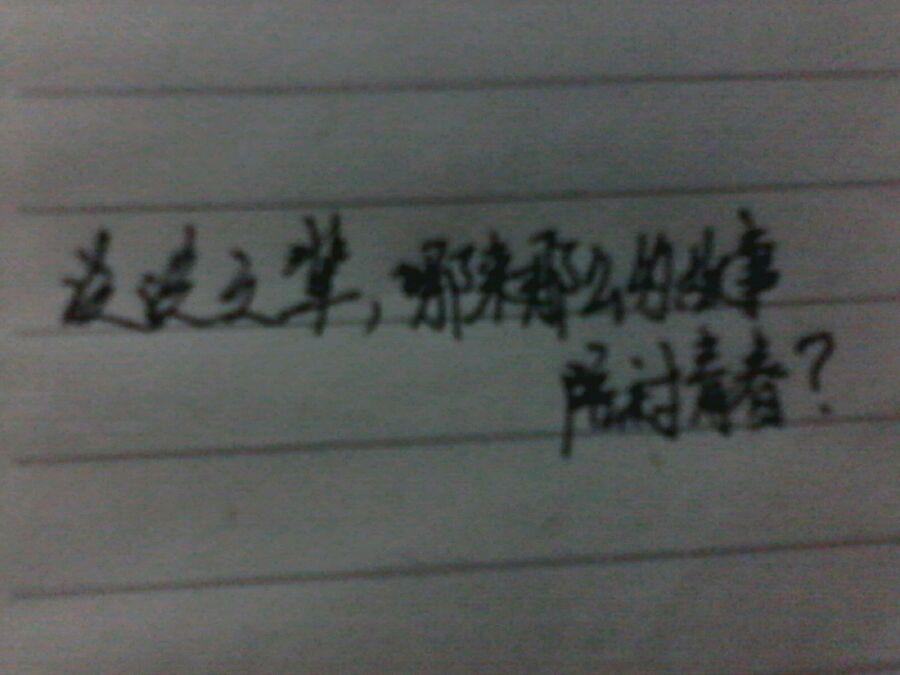 泛泛之辈,哪来那么的故事
陪衬青春?